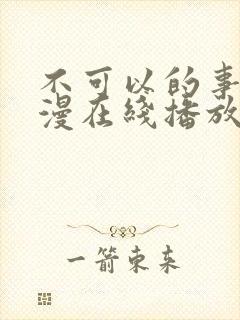 不可以的事
漫在线播放
一箭东来